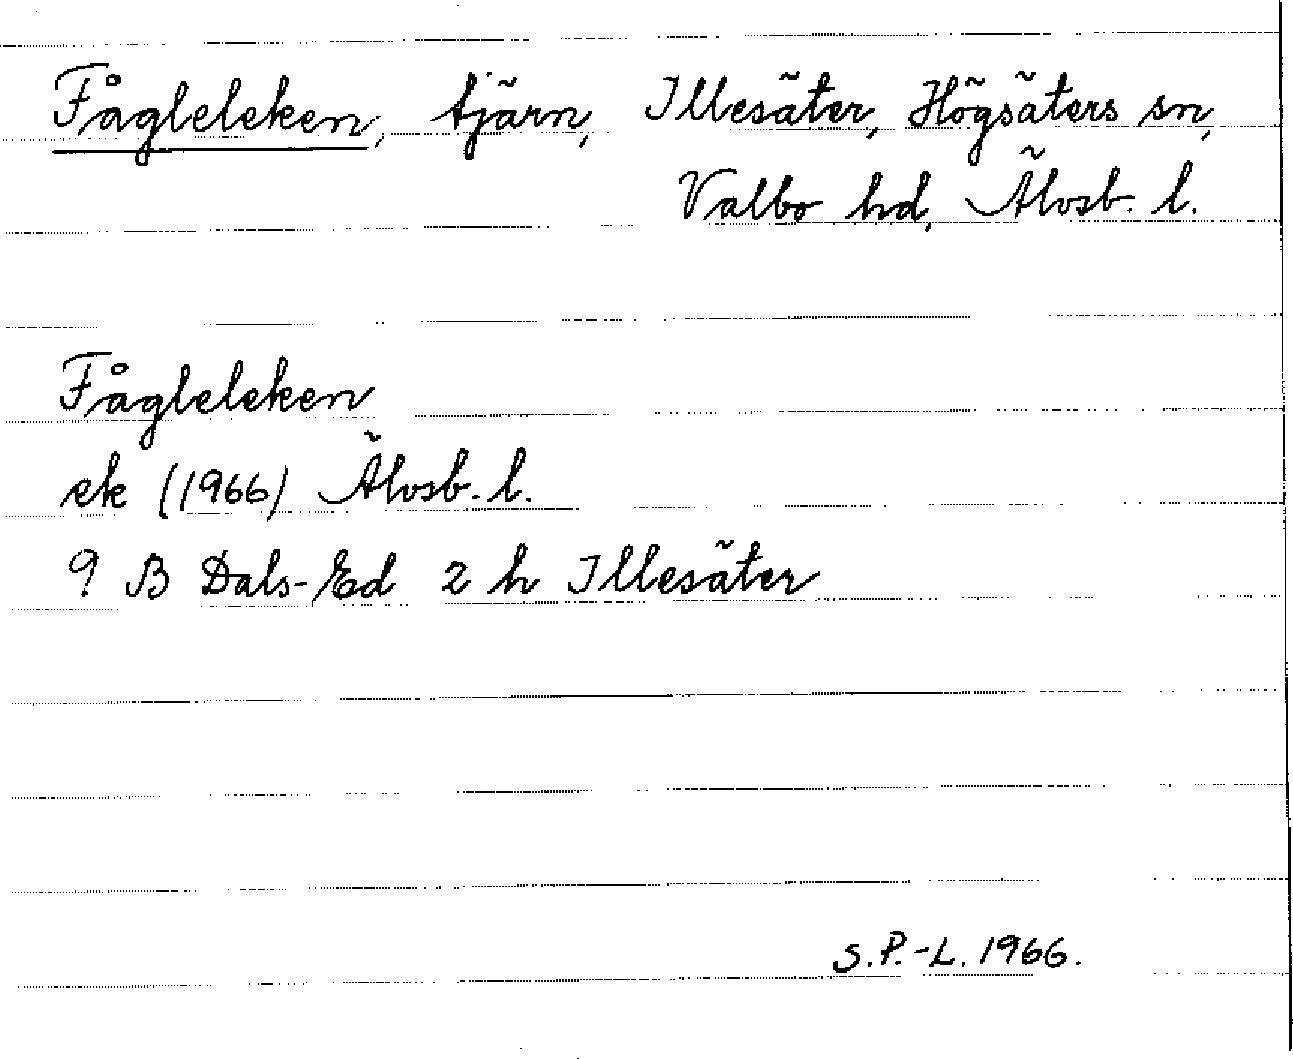 Fågleleken, tjärn, Illesäter, Högsäters sn,
Valbo hd, Älvsb. l.
Fågleleken
ek (1966) Älvsb. l.
9 B Dals-Ed 2 h Illesäter
S.P.-L. 1966.